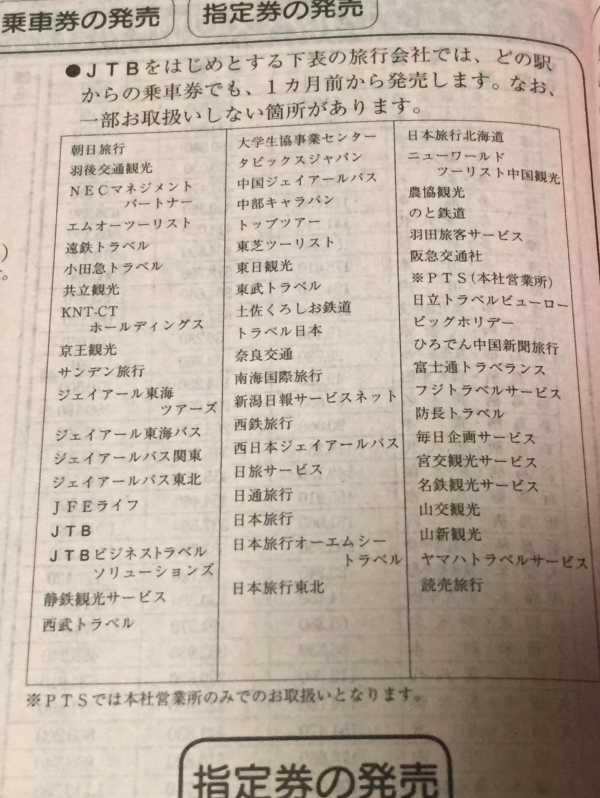 乗車券の発売
指定券の発売
●ＪＴＢをはじめとする下表の旅行会社では、どの駅
からの乗車券でも、１カ月前から発売します。なお、
一部お取扱いしない箇所があります。
朝日旅行
羽後交通観光
ＮＥＣマネジメント
パートナー
エムオーツーリスト
遠鉄トラベル
小田急トラベル
共立観光
KNT-CT
ホールディングス
京王観光
サンデン旅行
ジェイアール東海
ツアーズ
ジェイアール東海バス
ジェイアールバス関東
ジェイアールバス東北
ＪＦＥライフ
ＪＴＢ
ＪＴＢビジネストラベル
ソリューションズ
静鉄観光サービス
西武トラベル
大学生協事業センター
タビックスジャパン
中国ジェイアールバス
中部キャラバン
トップツアー
東芝ツーリスト
東日観光
東武トラベル
土佐くろしお鉄道
トラベル日本
奈良交通
南海国際旅行
新潟日報サービスネット
西鉄旅行
西日本ジェイアールバス
日旅サービス
日通旅行
日本旅行
日本旅行オーエムシー
トラベル
日本旅行東北
日本旅行北海道
ニューワールド
ツーリスト中国観光
農協観光
のと鉄道
羽田旅客サービス
阪急交通社
※ＰＴＳ(本社営業所)
日立トラベルビューロー
ビッグホリデー
ひろでん中国新聞旅行
富士通トラベランス
フジトラベルサービス
防長トラベル
毎日企画サービス
宮交観光サービス
名鉄観光サービス
山交観光
山新観光
ヤマハトラベルサービス
読売旅行
※ＰＴＳでは本社営業所のみでのお取扱いとなります。
指定券の発売